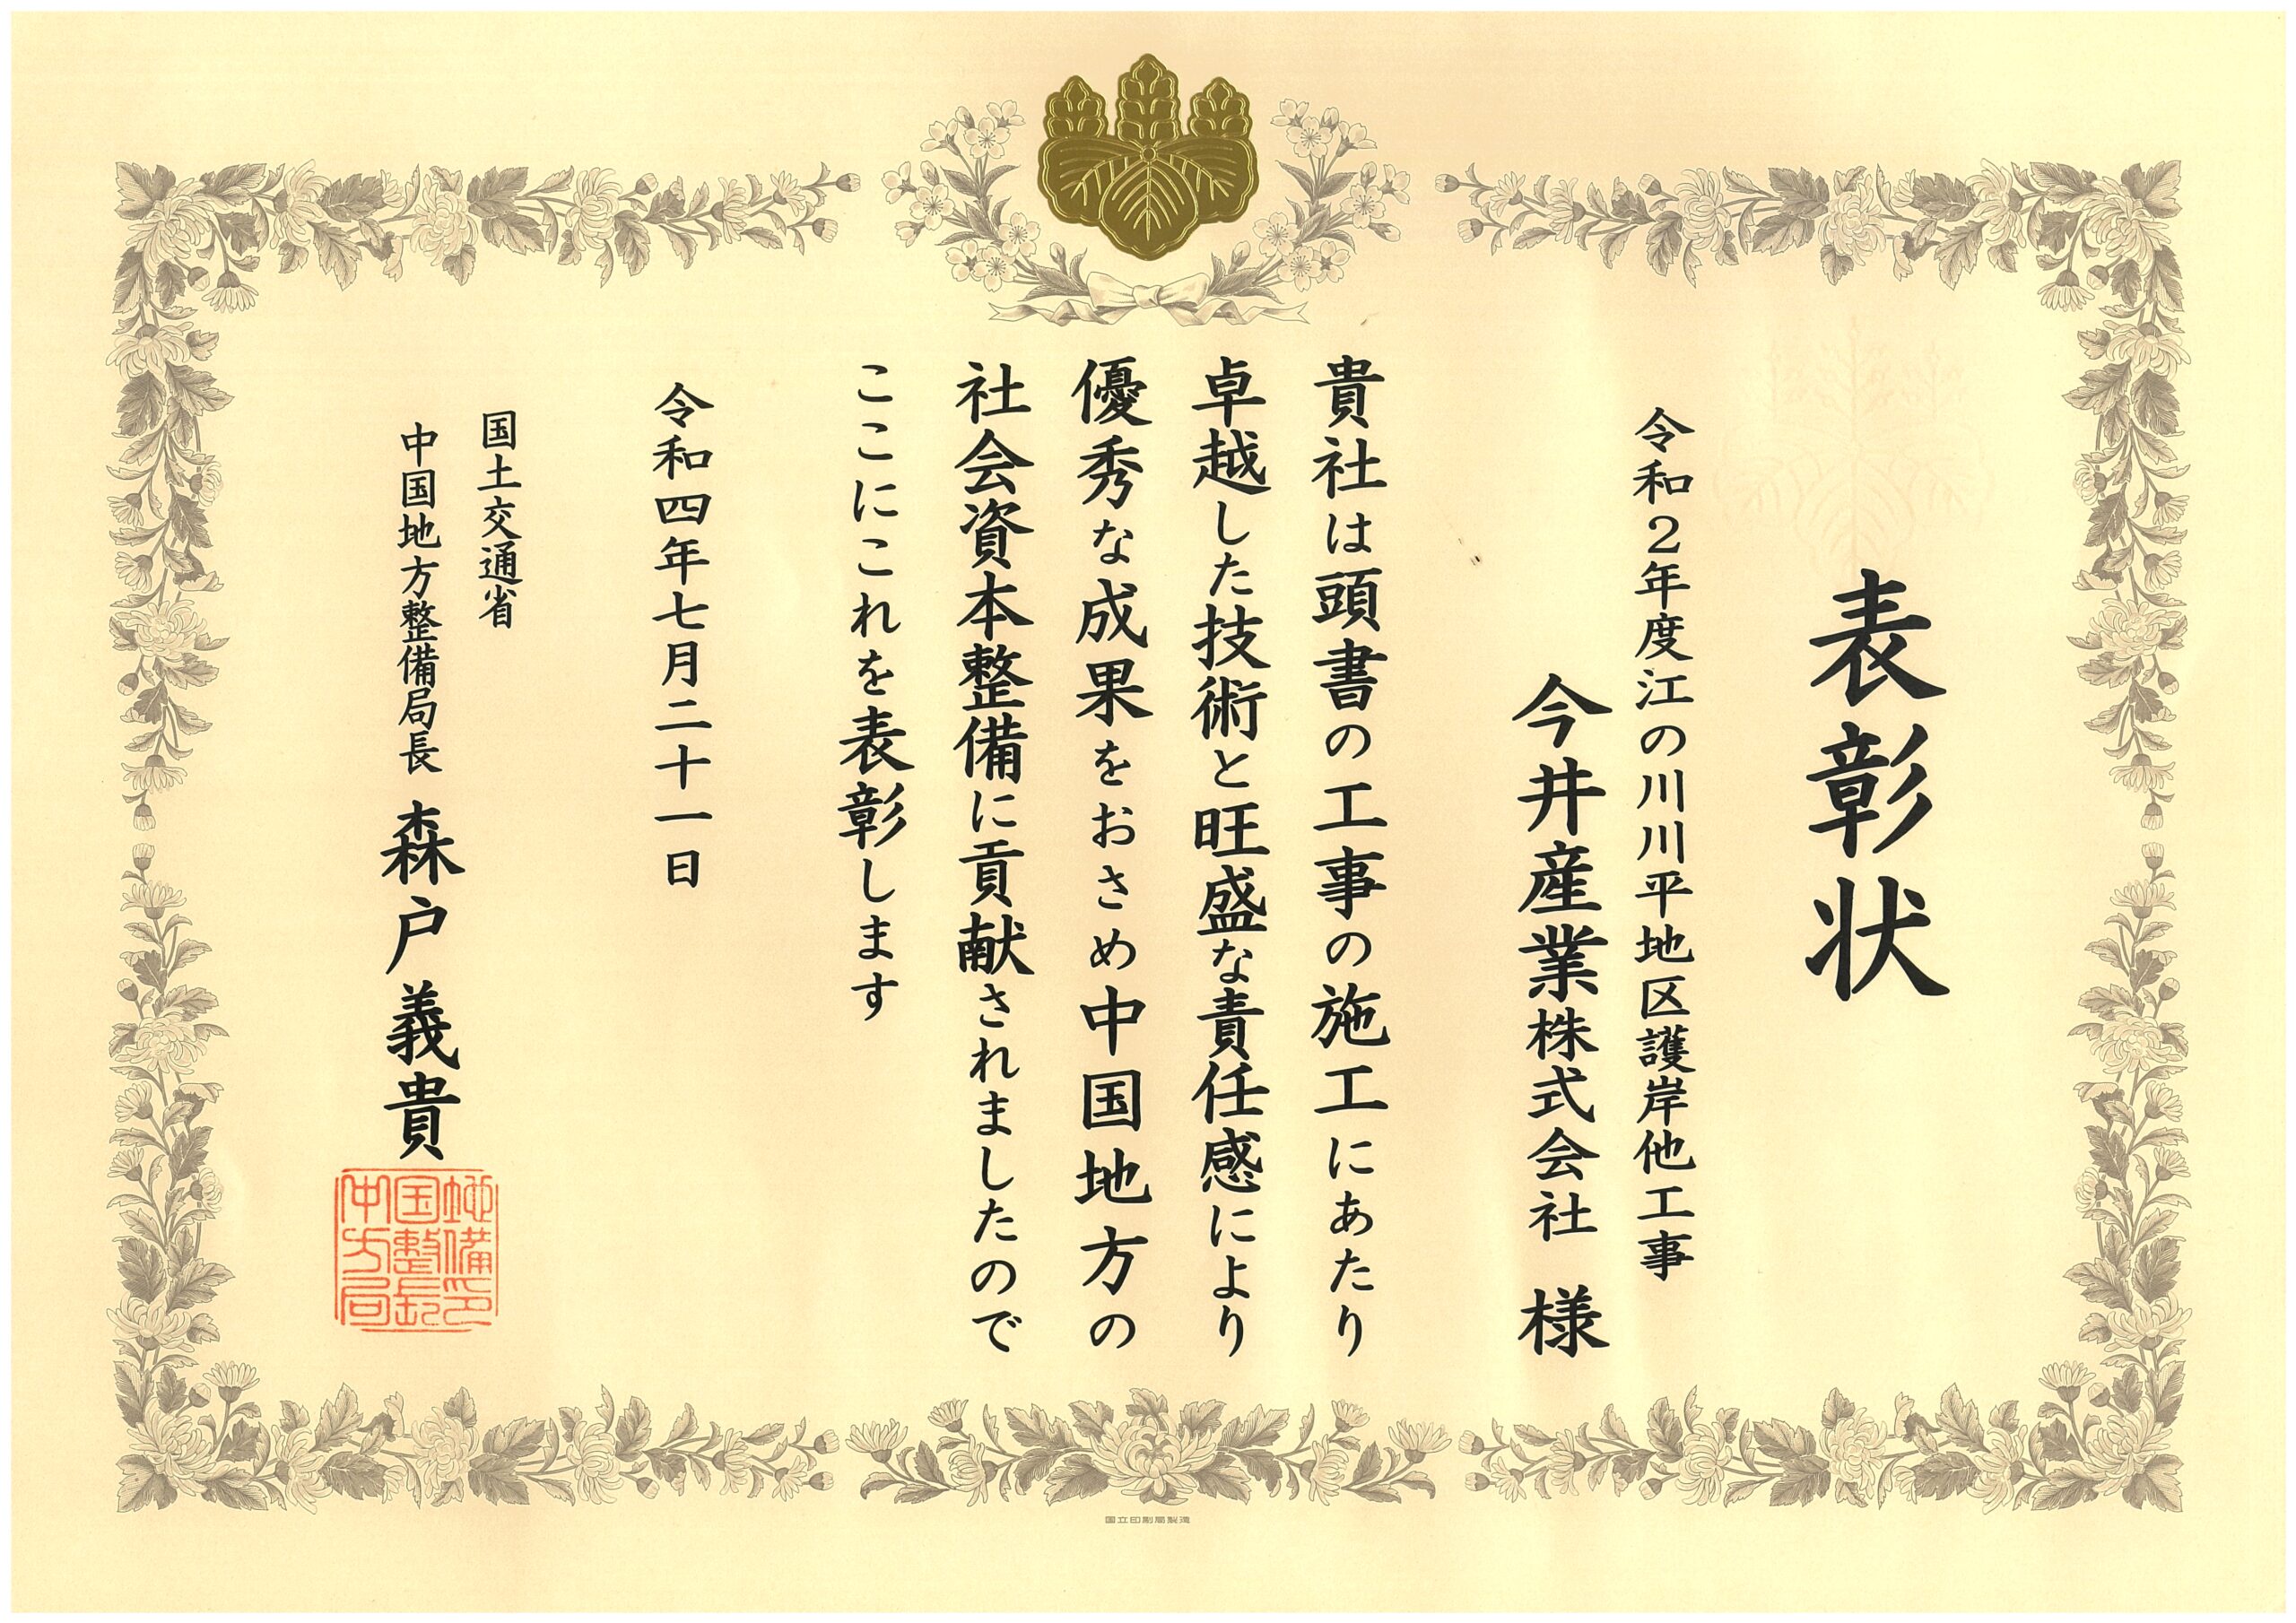 表彰状
令和２年度江の川川平地区護岸他工事
今井産業株式会社 様
貴社は頭書の工事の施工にあたり
卓越した技術と旺盛な責任感により
優秀な成果をおさめ中国地方の
社会資本整備に貢献されましたので
ここにこれを表彰します
令和四年七月二十一日
国土交通省
中国地方整備局長 森戸義貴
中国地
方整備
局長印
国立印刷局製造